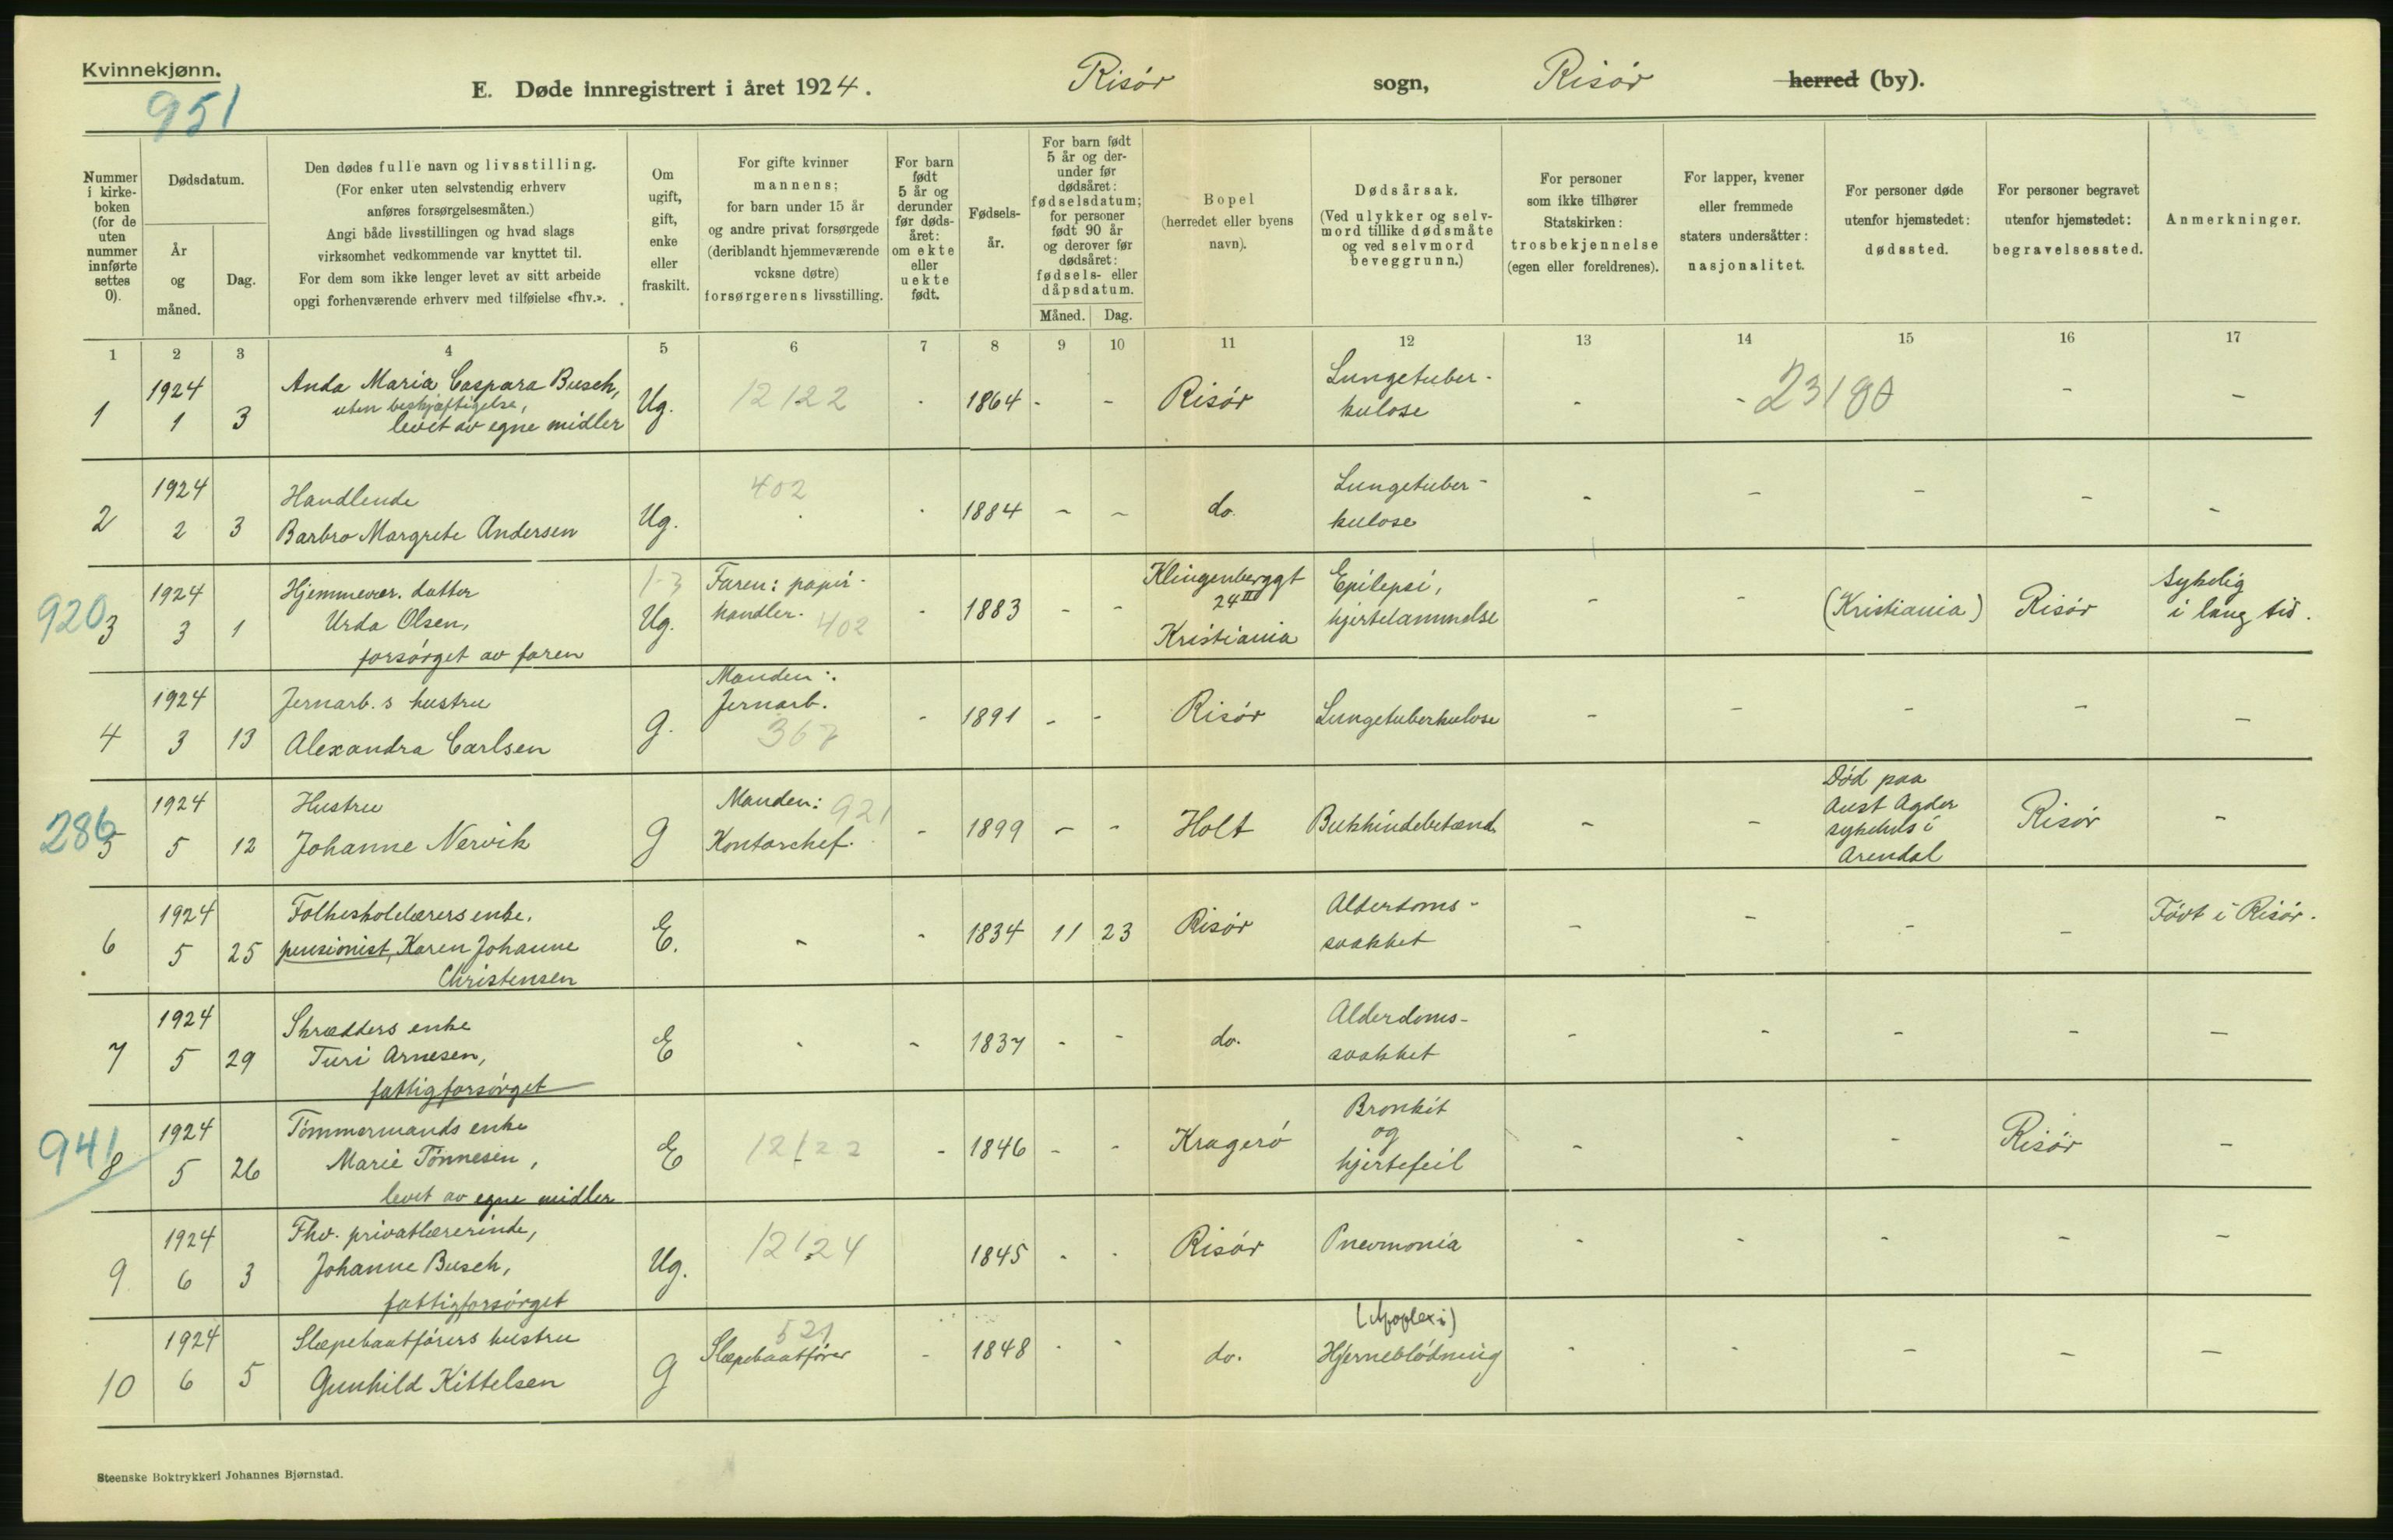 Kvinnekjønn.
951
E. Døde innregistrert i året 1924. Risör sogn, Risör herred (by).
Nummer i kirkeboken (for de uten nummer innførte settes 0).
Dødsdatum.
År og måned.
Dag.
Den dødes fulle navn og livsstilling.
(For enker uten selvstendig erhverv
anføres forsørgelsesmåten.)
Angi både livsstillingen og hvad slags
virksomhet vedkommende var knyttet til.
For dem som ikke lenger levet av sitt arbeide
opgi forhenværende erhverv med tilføielse «fhv.».
Om ugift, gift, enke eller fraskilt.
For gifte kvinner
mannens;
for barn under 15 år
og andre privat forsørgede
(deriblandt hjemmeværende
voksne døtre)
forsørgerens livsstilling.
For barn født 5 år og derunder før dødsåret: om ekte eller uekte født.
Fødselsår.
For barn født 5 år og derunder før dødsåret: fødselsdatum; for personer født 90 år og derover før dødsåret: fødsels- eller dåpsdatum.
Måned. Dag.
Bopel
(herredet eller byens
navn).
Dødsårsak.
(Ved ulykker og selvmord tillike dødsmåte og ved selvmord beveggrunn.)
For personer
som ikke tilhører
Statskirken:
trosbekjennelse
(egen eller foreldrenes).
For lapper, kvener
eller fremmede
staters undersåtter:
nasjonalitet.
For personer døde
utenfor hjemstedet:
dødssted.
For personer begravet
utenfor hjemstedet:
begravelsessted.
Anmerkninger.
1 2 3 4 5 6 7 8 9 10 11 12 13 14 15 16 17
1 1924 1 3 Anda Maria Caspara Busch,
uten beskjæftigelse,
levet av egne midler Ug. 12122 - 1864 - - Risör Lungetuber-
kulose - - 23180 - -
2 1924 2 3 Handlende
Barbro Margrete Andersen Ug. 402 - 1884 - - do. Lungetuber-
kulose - - - - -
920 3 1924 3 1 Hjemmevær. datter
Urda Olsen,
forsörget av faren 1-3 Ug. Faren: papir-
handler. 402 - 1883 - - Klingenberggt
24 II
Kristiania Epilepsi,
hjertelammelse - - (Kristiania) Risör Sykelig
i lang tid.
4 1924 3 13 Jernarb.s hustru
Alexandra Carlsen g. Manden:
Jernarb.
367 - 1891 - - Risör Lungetuberkulose - - - - -
286 5 1924 5 12 Hustru
Johanne Nervik g Manden: 921
Kontorchef. - 1899 - - Holt Bukhindebetænd. - - Död paa
Aust Agder
sykehus i
Arendal Risör -
6 1924 5 25 Folkeskolelærers enke,
pensionist, Karen Johanne
Christensen E. - - 1834 11 23 Risör Alderdoms-
svakhet - - - - Född i Risör.
7 1924 5 29 Skrædders enke
Turi Arnesen,
fattigforsörget E - - 1837 - - do. Alderdoms-
svakhet - - - - -
941 8 1924 5 26 Tömmermands enke
Marie Tönnesen,
levet av egne midler E 12122 - 1846 - - Kragerö Bronkit
og
hjertefeil - - - Risör -
9 1924 6 3 Fhv. privatlærerinde,
Johanne Busch,
fattigforsörget Ug. 12124 1845 - - Risör Pneumonia - - - - -
10 1924 6 5 Slæpebaatförers hustru
Gunhild Kittelsen g 521
Slæpebaatförer - 1848 - - do. (Apoplexi)
Hjerneblödning - - - - -
Steenske Boktrykkeri Johannes Bjørnstad.